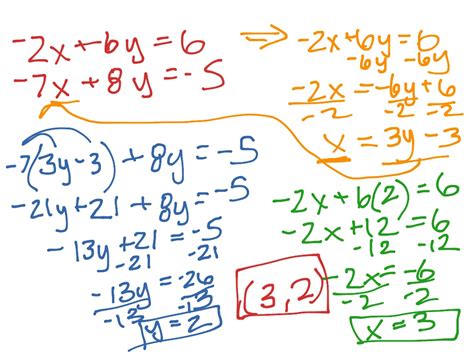 -2x+6y=6
-7x+8y=-5
⇒ -2x+6y=6
-6y -6y
-2x=-6y+6
-2 -2 -2
x = 3y-3
-7(3y-3)+8y=-5
-21y+21+8y=-5
-13y+21=-5
-21 -21
-13y=-26
-13 -13
y=2
-2x+6(2)=6
-2x+12=6
-12 -12
-2x=-6
-2 -2
x=3
(3,2)